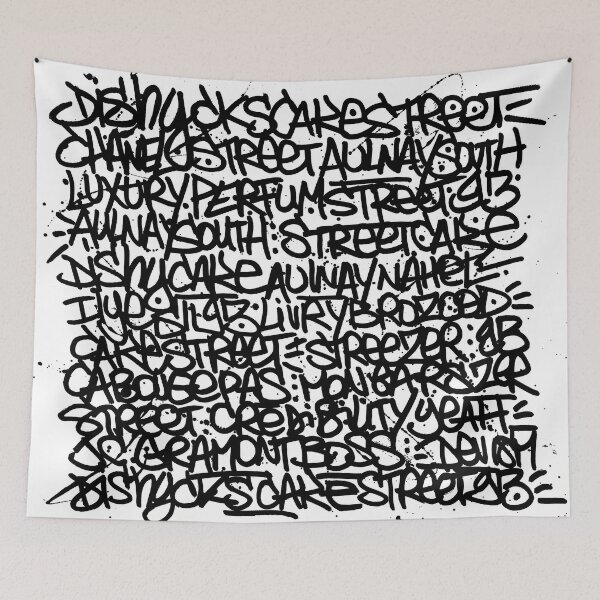 DishyCKSCAKESTREET
CHANELSTREET AULNAYSOUTH
LUXURY.PERFUMSTREET.93
AULNAYSOUTH: STREETCAKE
DishyCAKE AULNAY NAHEL
LIVRY BROZCED
CAKESTREET= STREEZER: 93
CABOUGERAS: MON GARSZER
STREET CREDIBILITY YEAH=
GRAMONT BOSS:
DishyCKSCAKESTREET93=